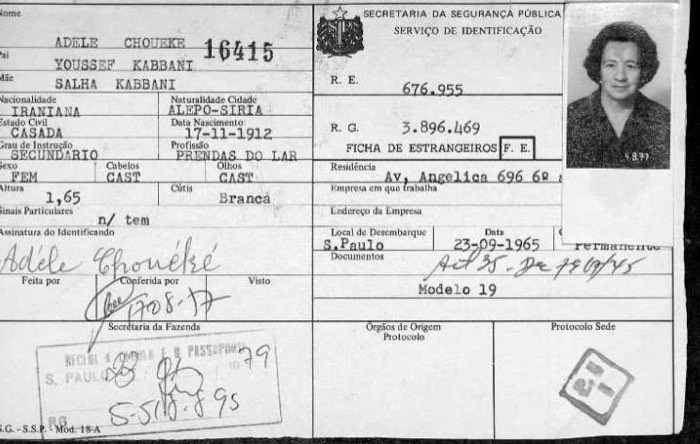 Nome
ADELE CHOUEKE
16415
Pai
YOUSSEF KABBANI
Mãe
SALHA KABBANI
Nacionalidade
IRANIANA
Naturalidade Cidade
ALEPO-SIRIA
Estado Civil
CASADA
Data Nascimento
17-11-1912
Grau de Instrução
SECUNDARIO
Profissão
PRENDAS DO LAR
Sexo
FEM
Cabelos
CAST
Olhos
CAST
Altura
1,65
Cútis
Branca
Sinais Particulares
n/ tem
Assinatura do Identificando
Adéle Chouéké
Feita por
Conferida por
Visto
Secretaria da Fazenda
S. PAULO
79
S.G. - S.S.P. Mod. 18-A
SECRETARIA DA SEGURANÇA PÚBLICA
SERVIÇO DE IDENTIFICAÇÃO
R. E.
676.955
R. G.
3.896.469
FICHA DE ESTRANGEIROS F. E.
Residência
Av, Angelica 696 6º
Empresa em que trabalha
Endereço da Empresa
Local de Desembarque
S.Paulo
Data
23-09-1965
Permanente
Documentos
Modelo 19
Órgãos de Origem
Protocolo
Protocolo Sede